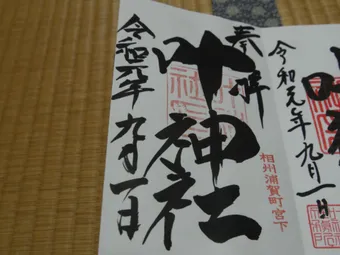 奉拝
叶神社
令和元年九月一日
相州浦賀町宮下
令和元年九月一日